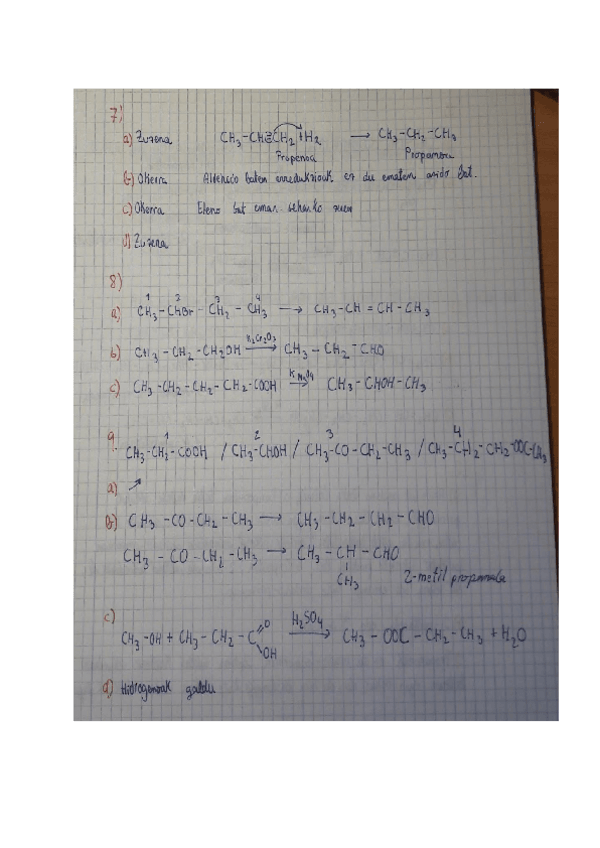 7)
a) Zuzena CH3-CH=CH2+H2 → CH3-CH2-CH3
Propenoa Propanoa
b) Okerra Aldehido baten erredukzioak ez du ematen azido bat.
c) Okerra Eteno bat eman beharko zuen
d) Zuzena
8)
1 2 3 4
a) CH3-CHBr-CH2-CH3 → CH3-CH=CH-CH3
b) CH3-CH2-CH2OH K2Cr2O7→ CH3-CH2-CHO
c) CH3-CH2-CH2-CH2-COOH KMnO4→ CH3-CHOH-CH3
9.
1 2 3 4
CH3-CH2-COOH / CH3-CHOH / CH3-CO-CH2-CH3 / CH3-CH2-CH2-OOC-CH3
a) ↗
b) CH3-CO-CH2-CH3 → CH3-CH2-CH2-CHO
CH3-CO-CH2-CH3 → CH3-CH-CHO
CH3 2-metil propanala
c) H2SO4
CH3-OH+CH3-CH2-C=O OH → CH3-OOC-CH2-CH3+H2O
d) Hidrogenoak galdu